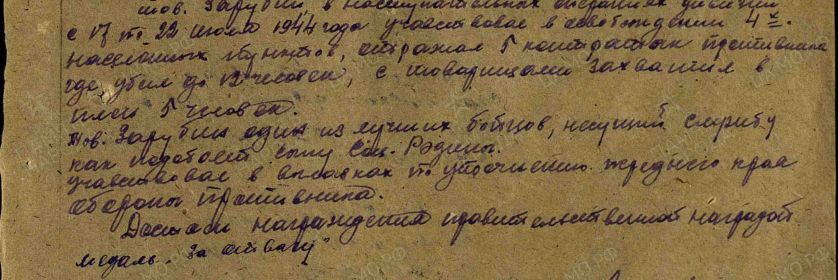 тов. Зарубин, в наступательных операциях дивизии
с 17 по 22 июля 1944 года участвовал в освобождении 4х
населенных пунктов, отражал 5 контратак противника
где убил до 12 человек, с товарищами захватил в
плен 5 человек.
Тов. Зарубин один из лучших бойцов, несущий службу
как подобает сыну Соц. Родины.
участвовал в вылазках по уточнению переднего края
обороны противника.
Достоин награждения правительственной наградой
медаль "За отвагу"